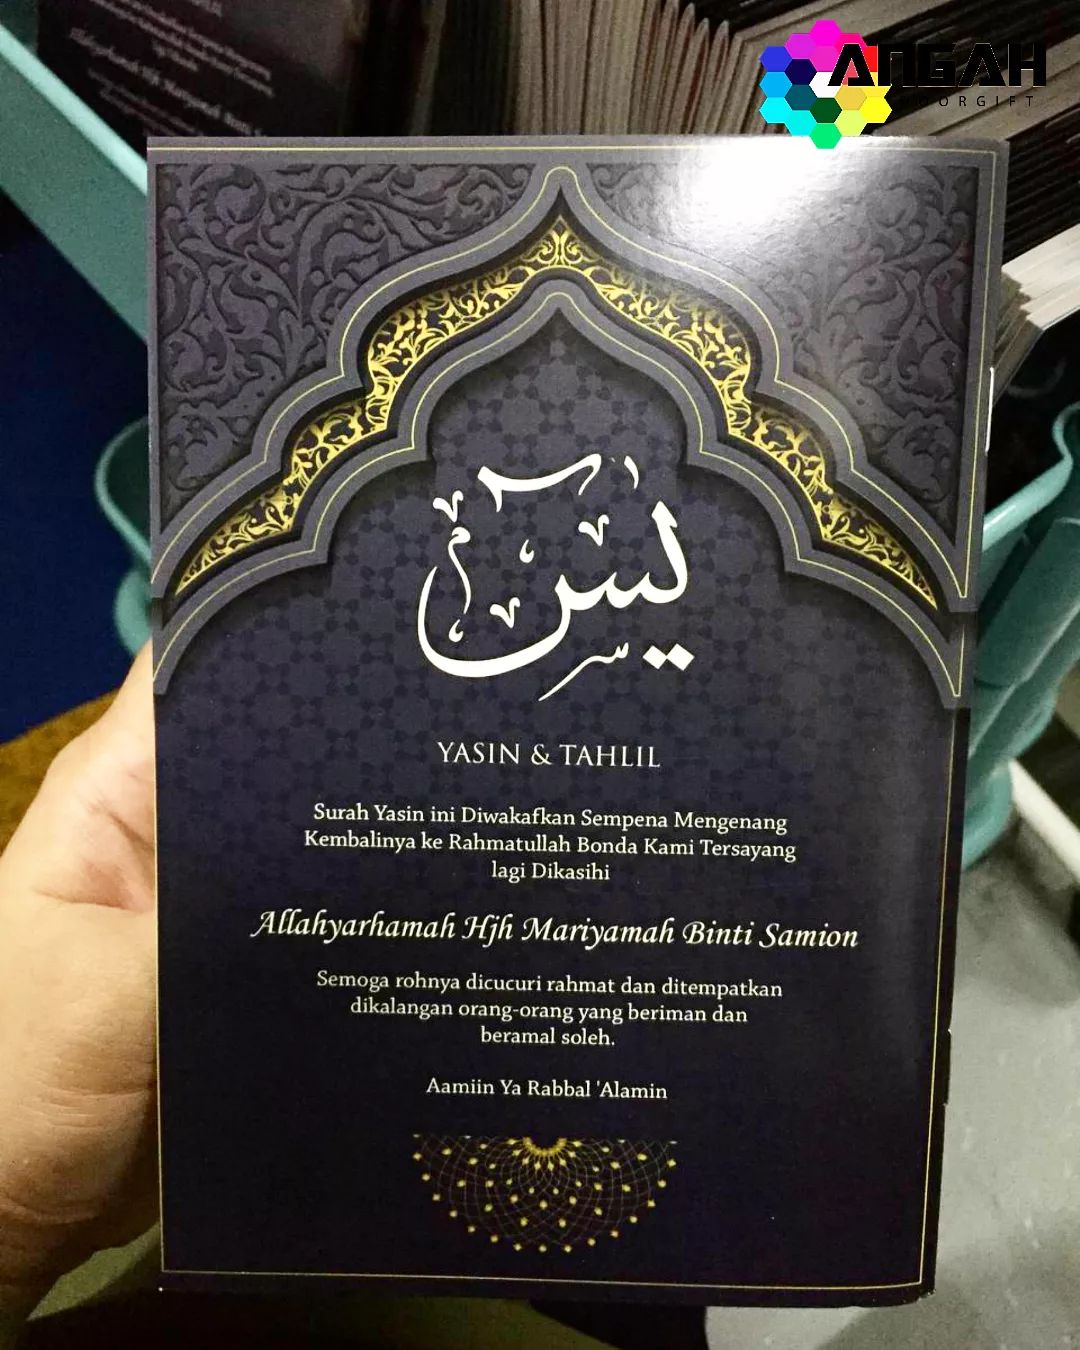 ANGAH
ORGIFT
يس
YASIN & TAHLIL
Surah Yasin ini Diwakafkan Sempena Mengenang
Kembalinya ke Rahmatullah Bonda Kami Tersayang
lagi Dikasihi
Allahyarhamah Hjh Mariyamah Binti Samion
Semoga rohnya dicucuri rahmat dan ditempatkan
dikalangan orang-orang yang beriman dan
beramal soleh.
Aamiin Ya Rabbal 'Alamin